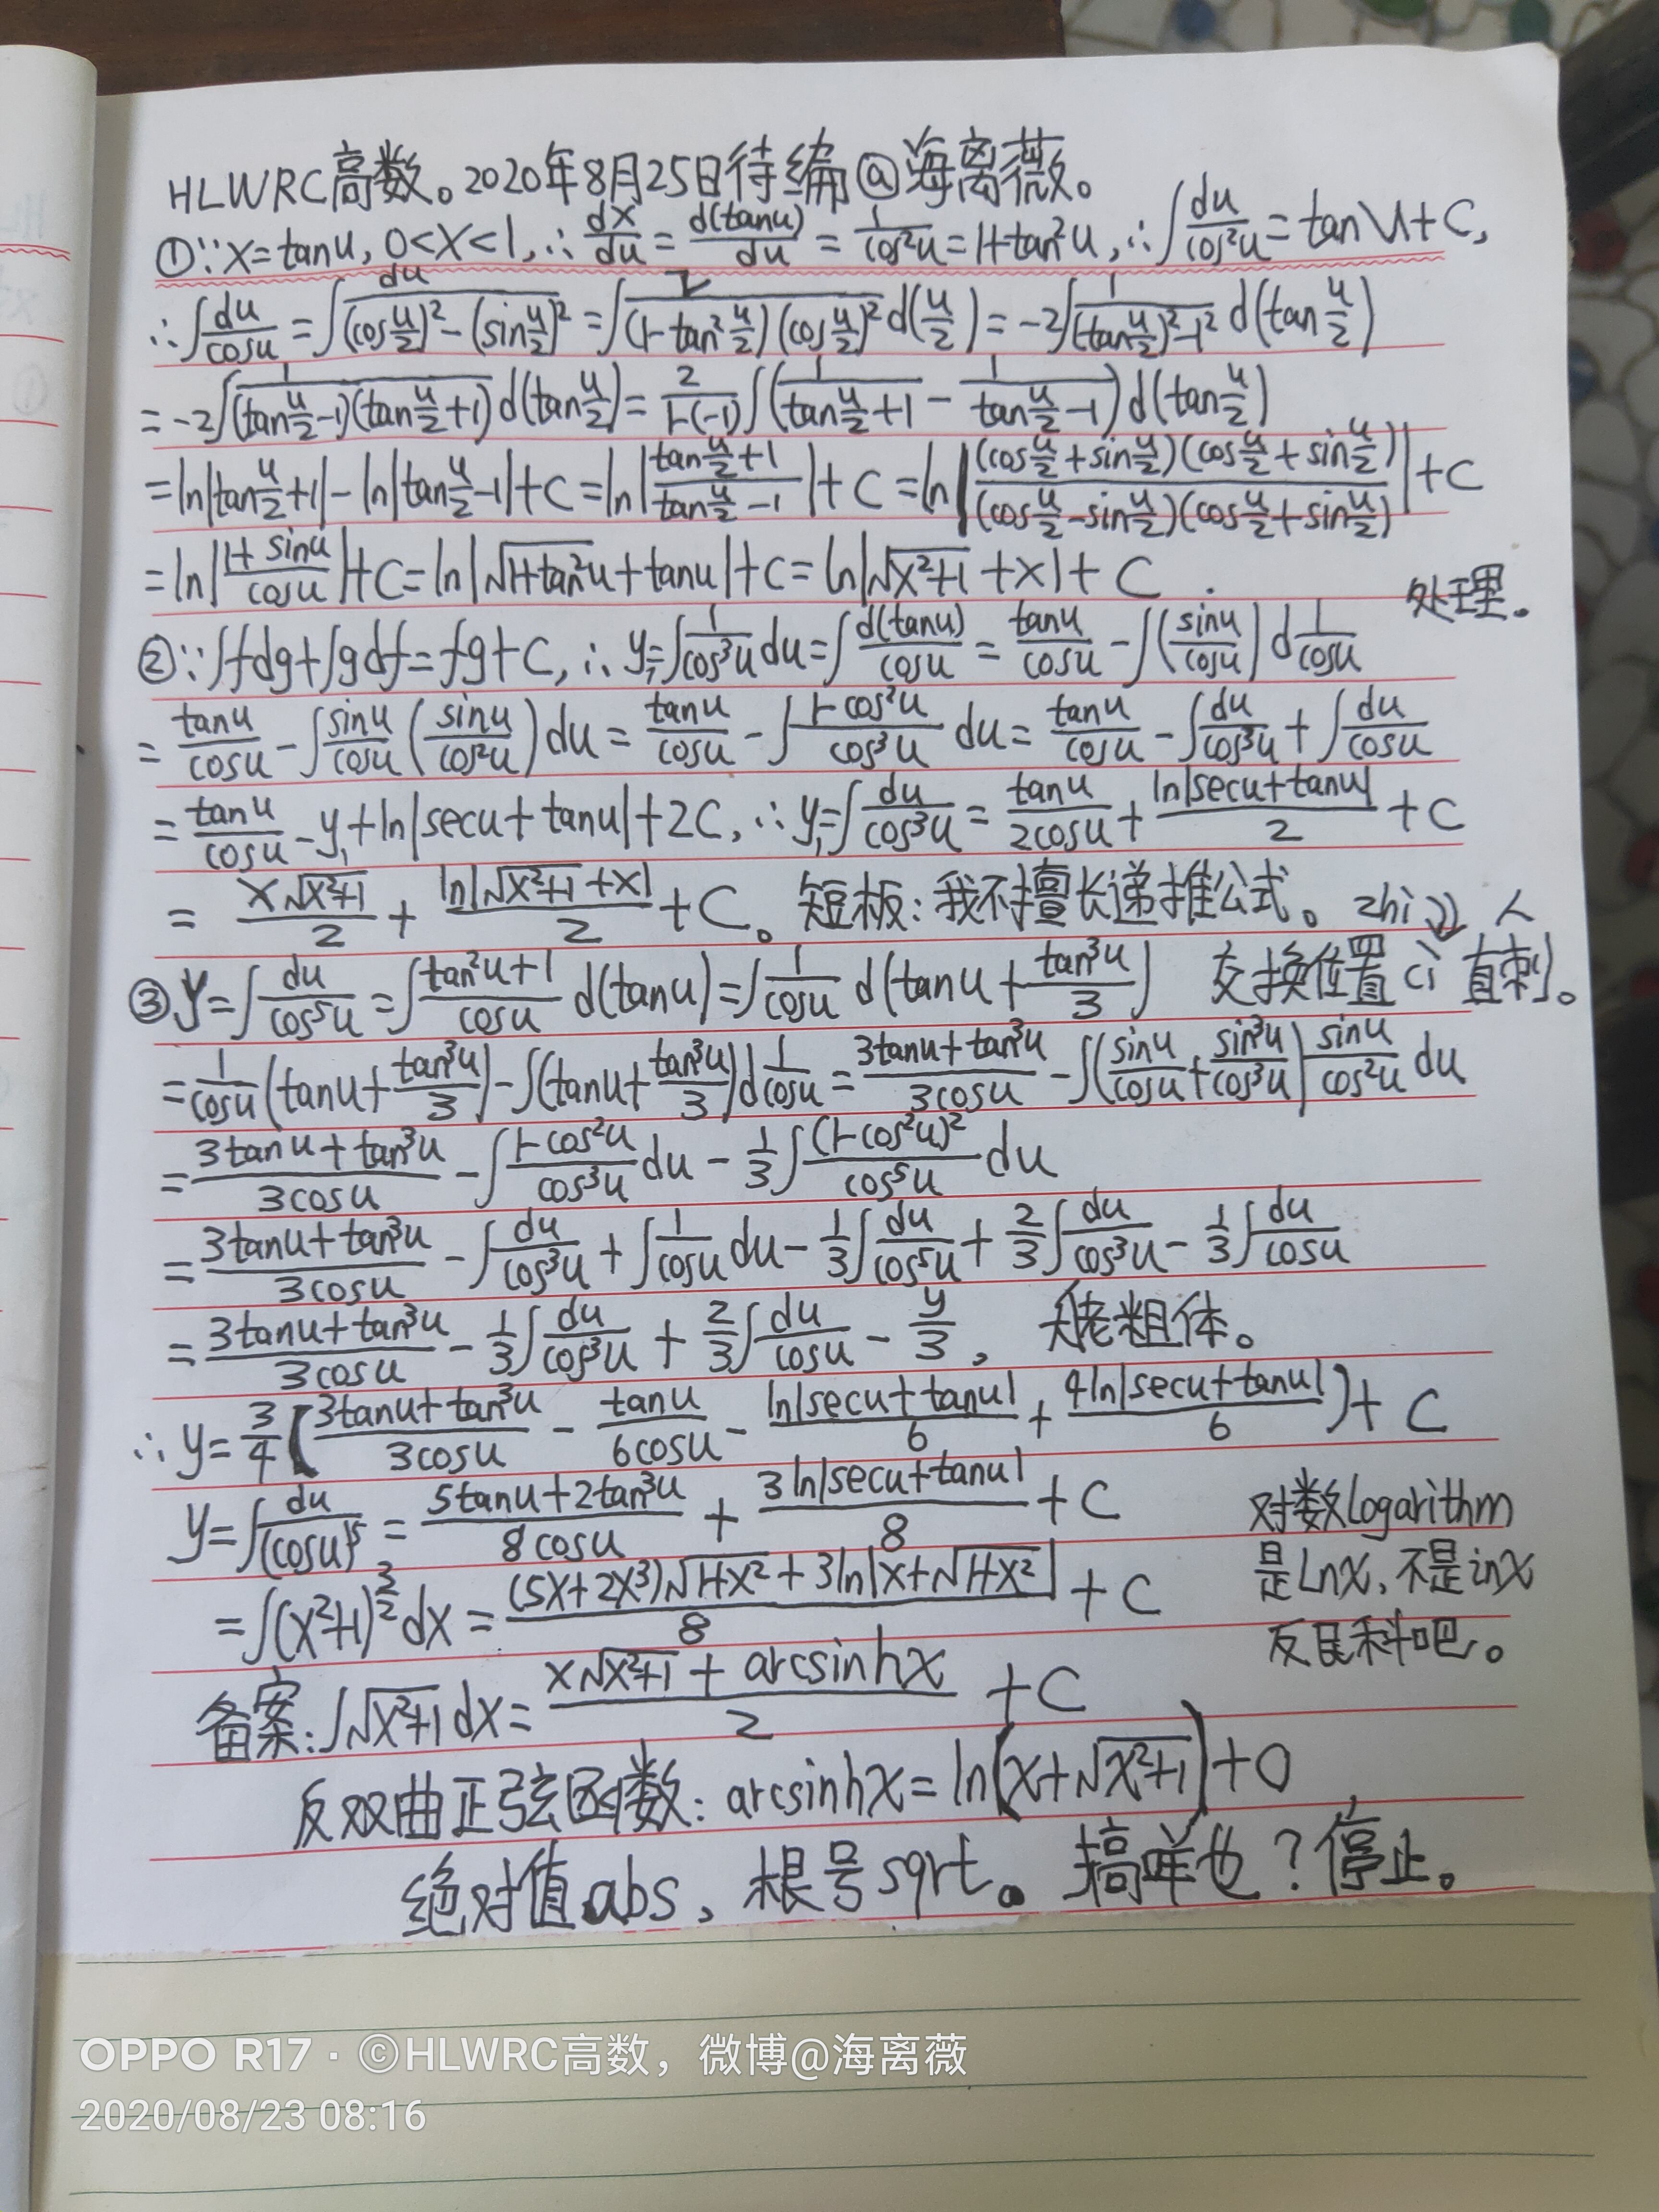 HLWRC高数。2020年8月25日待编@海离薇。
①∵x=tanu, 0<x<1, ∴ dx/du = d(tanu)/du = 1/cos²u = 1+tan²u, ∴∫du/cos²u = tanu+C,
∴∫du/cosu = ∫du/((cos u/2)²-(sin u/2)²) = ∫2/((1-tan² u/2)(cos u/2)²) d(u/2) = -2∫1/((tan u/2)²-1²) d(tan u/2)
= -2∫1/((tan u/2 -1)(tan u/2 +1)) d(tan u/2) = 2/(1-(-1)) ∫(1/(tan u/2 +1) - 1/(tan u/2 -1)) d(tan u/2)
= ln|tan u/2 +1| - ln|tan u/2 -1| + C = ln|(tan u/2 +1)/(tan u/2 -1)| + C = ln|(cos u/2 + sin u/2)(cos u/2 + sin u/2)/((cos u/2 - sin u/2)(cos u/2 + sin u/2))| + C
= ln|(1+sinu)/cosu| + C = ln|√(1+tan²u) + tanu| + C = ln|√(x²+1) + x| + C
处理。
②∵∫fdg+∫gdf=fg+C, ∴ y₁=∫1/cos³u du = ∫d(tanu)/cosu = tanu/cosu - ∫(sinu/cosu) d 1/cosu
= tanu/cosu - ∫sinu/cosu (sinu/cos²u) du = tanu/cosu - ∫(1-cos²u)/cos³u du = tanu/cosu - ∫du/cos³u + ∫du/cosu
= tanu/cosu - y₁ + ln|secu+tanu| + 2C, ∴ y₁=∫du/cos³u = tanu/2cosu + ln|secu+tanu|/2 + C
= x√(x²+1)/2 + ln|√(x²+1)+x|/2 + C。短板:我不擅长递推公式。zhi 人
③y=∫du/cos⁵u = ∫(tan²u+1)/cosu d(tanu) = ∫1/cosu d(tanu + tan³u/3) 交换位置 ci 直刺。
= 1/cosu (tanu + tan³u/3) - ∫(tanu + tan³u/3) d 1/cosu = (3tanu+tan³u)/3cosu - ∫(sinu/cosu + sin³u/cos³u) sinu/cos²u du
= (3tanu+tan³u)/3cosu - ∫(1-cos²u)/cos³u du - 1/3 ∫(1-cos²u)²/cos⁵u du
= (3tanu+tan³u)/3cosu - ∫du/cos³u + ∫1/cosu du - 1/3 ∫du/cos⁵u + 2/3 ∫du/cos³u - 1/3 ∫du/cosu
= (3tanu+tan³u)/3cosu - 1/3 ∫du/cos³u + 2/3 ∫du/cosu - y/3, 粗体。
∴ y = 3/4 ((3tanu+tan³u)/3cosu - tanu/6cosu - ln|secu+tanu|/6 + 4ln|secu+tanu|/6) + C
y=∫du/(cosu)⁵ = (5tanu+2tan³u)/8cosu + 3ln|secu+tanu|/8 + C
对数logarithm
是Lnx,不是inx
反民科吧。
=∫(x²+1)^(3/2) dx = ((5x+2x³)√(1+x²) + 3ln|x+√(1+x²)|)/8 + C
备案:∫√(x²+1) dx = (x√(x²+1) + arcsinhx)/2 + C
反双曲正弦函数:arcsinhx = ln(x+√(x²+1)) + 0
绝对值abs、根号sqrt。搞咩也?停止。
OPPO R17 · ©HLWRC高数,微博@海离薇
2020/08/23 08:16